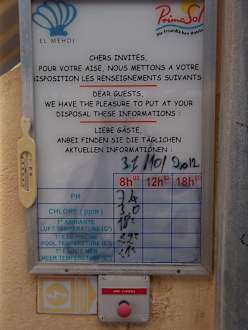 EL MEHDI
PrimaSol
CHERS INVITES,
POUR VOTRE AISE, NOUS METTONS A VOTRE
DISPOSITION LES RENSEIGNEMENTS SUIVANTS
DEAR GUESTS,
WE HAVE THE PLEASURE TO PUT AT YOUR
DISPOSAL THESE INFORMATIONS :
LIEBE GÄSTE,
ANBEI FINDEN SIE DIE TÄGLICHEN
AKTUELLEN INFORMATIONEN :
31/10/2012
8h00 12h00 18h00
PH 7,4
CHLORE (ppm) 3,0
T° AMBIANTE 18°
LUFT TEMPERATURE (C°)
T° EAU PISCINE 22°
POOL TEMPERATURE (C°)
T° EAU DE MER 21°
MEER TEMPERATURE (C°)